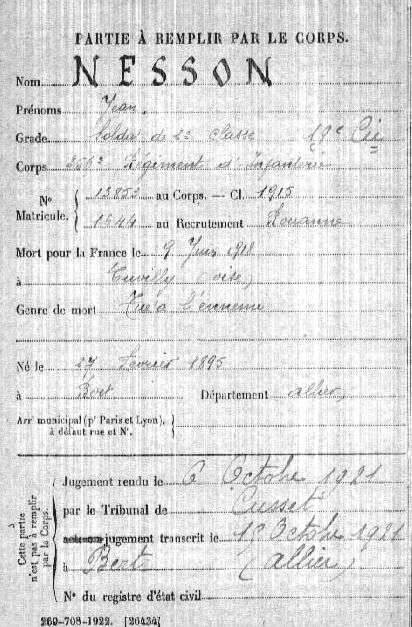 PARTIE À REMPLIR PAR LE CORPS.
Nom NESSON
Prénoms Jean
Grade Soldat de 2e classe 18e Cie
Corps Régiment d'Infanterie
No Matricule. 13852 au Corps. — Cl. 1915
1644 au Recrutement Rouanne
Mort pour la France le 9 Juin 1918
à Cuvilly (oise)
Genre de mort Tué à l'ennemi
Né le 27 Fevrier 1895
à Bert Département allier
Arr municipal (pr Paris et Lyon),
à défaut rue et No.
Cette partie
n'est pas à remplir
par le Corps.
Jugement rendu le 6 Octobre 1921
par le Tribunal de Cusset
jugement transcrit le Octobre 1921
à Bert (allier)
No du registre d'état civil
260-708-1922. [26434]